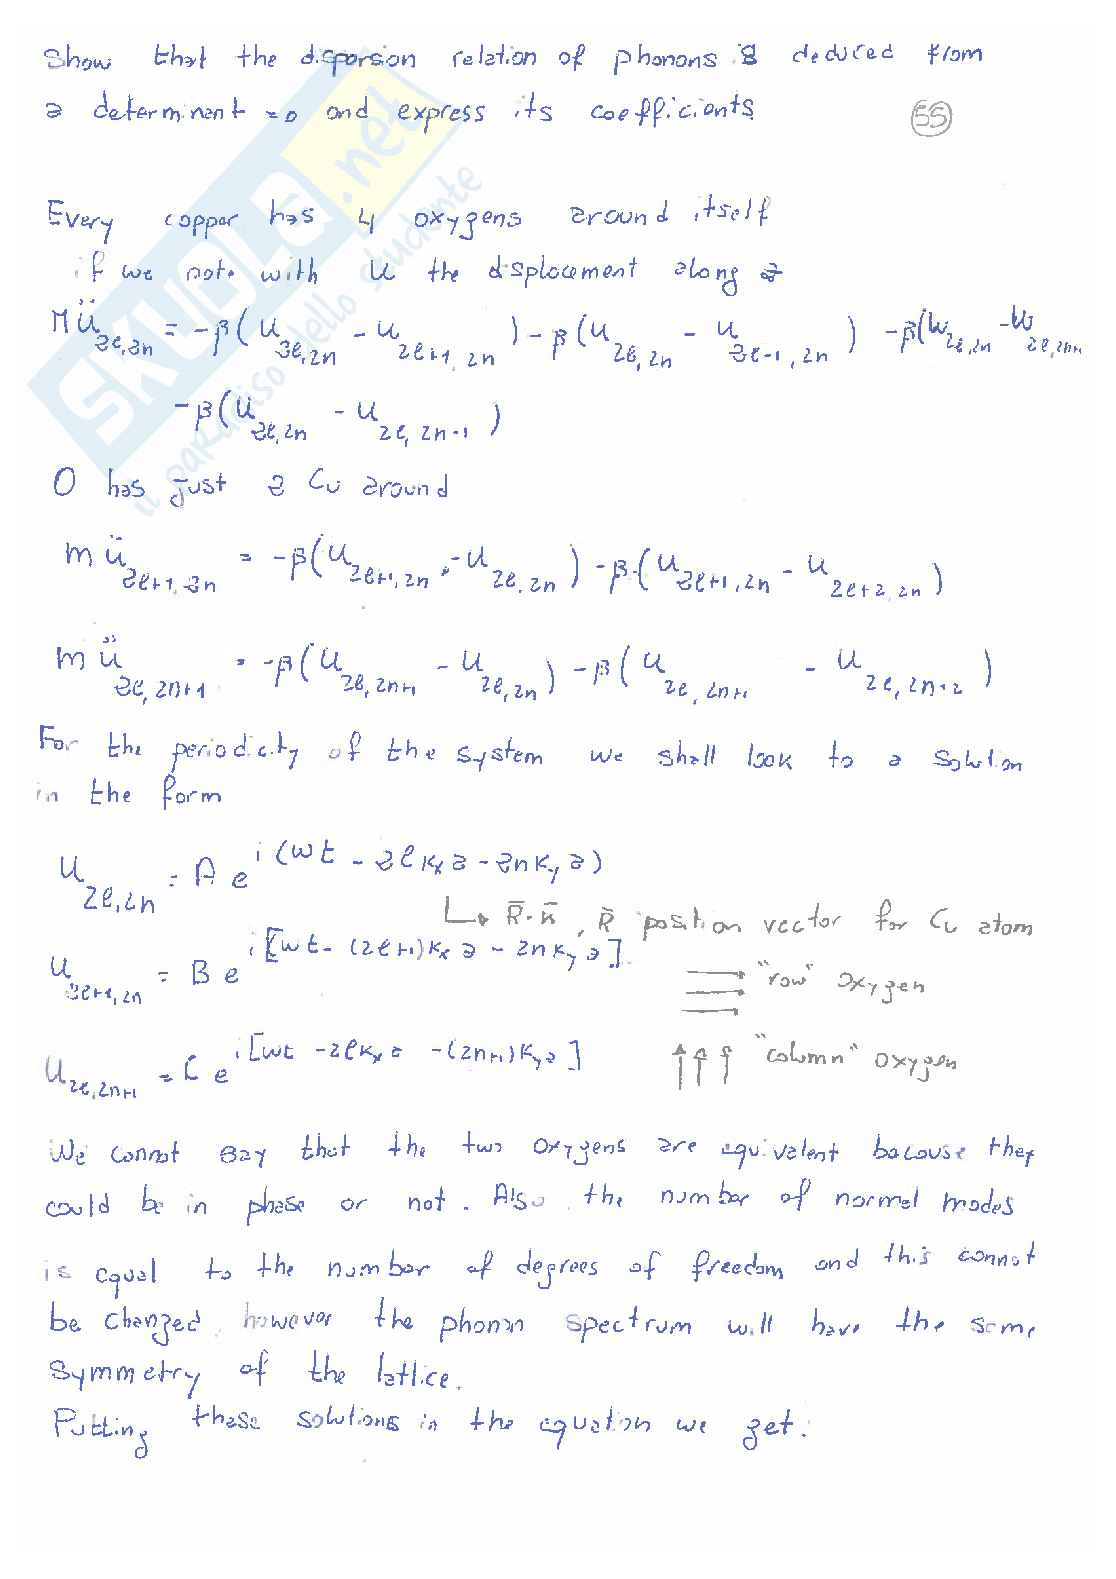 Show that the dispersion relation of phonons is deduced from
a determinant =0 and express its coefficients
55
Every copper has 4 oxygens around itself
if we note with U the displacement along z
M ü_{2l,2n} = -β(u_{2l,2n} - u_{2l+1,2n}) - β(u_{2l,2n} - u_{2l-1,2n}) - β(u_{2l,2n} - u_{2l,2n+1})
-β(u_{2l,2n} - u_{2l,2n-1})
O has just 2 Cu around
m ü_{2l+1,2n} = -β(u_{2l+1,2n} - u_{2l,2n}) - β(u_{2l+1,2n} - u_{2l+2,2n})
m ü_{2l,2n+1} = -β(u_{2l,2n+1} - u_{2l,2n}) - β(u_{2l,2n+1} - u_{2l,2n+2})
For the periodicity of the system we shall look to a solution
in the form
U_{2l,2n} = A e^{i(ωt - 2lKxa - 2nKya)}
↳ R̄·k̄, R̄ position vector for Cu atom
U_{2l+1,2n} = B e^{i[ωt - (2l+1)Kxa - 2nKya]}
"row" oxygen
U_{2l,2n+1} = C e^{i[ωt - 2lKxa - (2n+1)Kya]}
"column" oxygen
We cannot say that the two oxygens are equivalent because they
could be in phase or not. Also the number of normal modes
is equal to the number of degrees of freedom and this cannot
be changed, however the phonon spectrum will have the same
symmetry of the lattice.
Putting these solutions in the equation we get:
SKUOLA.net
il paradiso dello studente